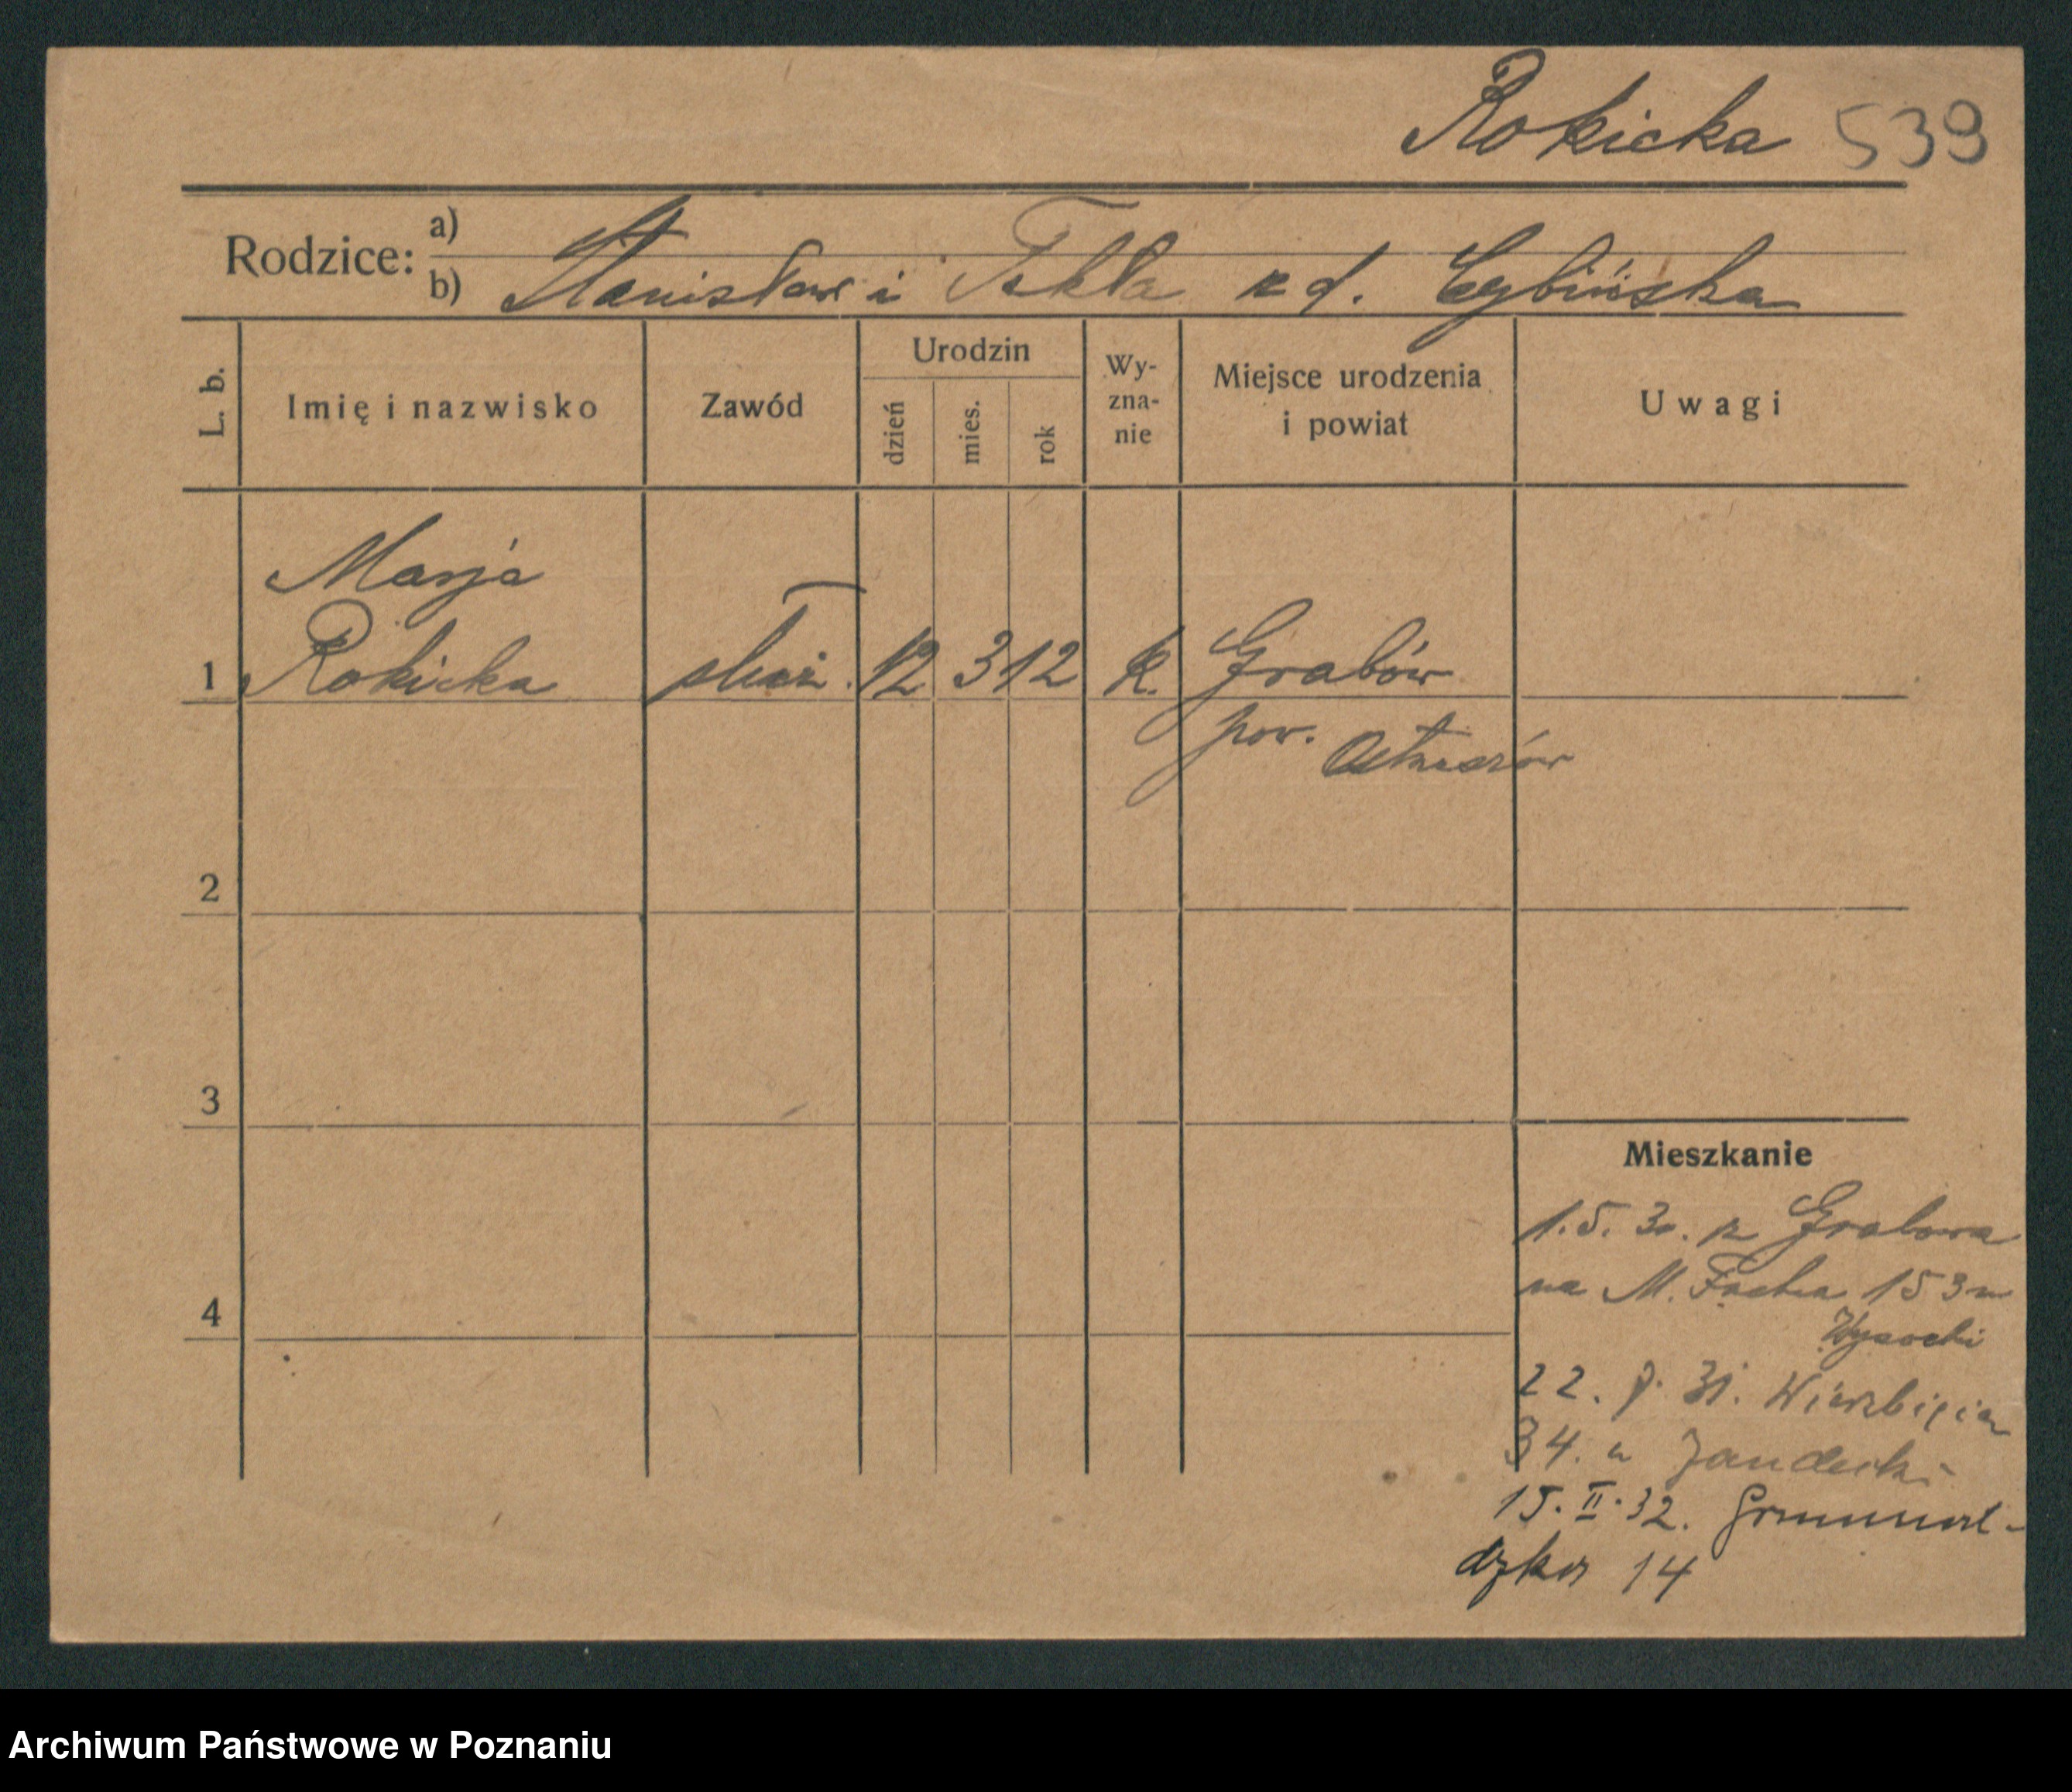 Rokicka 539
Rodzice: a)
b) Stanisław i Tekla z d. Cybińska
L. b.
Imię i nazwisko
Zawód
Urodzin
dzień
mies.
rok
Wy-
zna-
nie
Miejsce urodzenia
i powiat
Uwagi
Marja
1 Rokicka służ. 12 3 12 k. Grabów
pow. Ostrzeszów
2
3
4
Mieszkanie
1.5.30. z Grabowa
na M. Focha 153 u
Wysocki
22. 31. Wierzbięcice
34. u Jandecki
15.II.32. Grunwal-
dzka 14
Archiwum Państwowe w Poznaniu